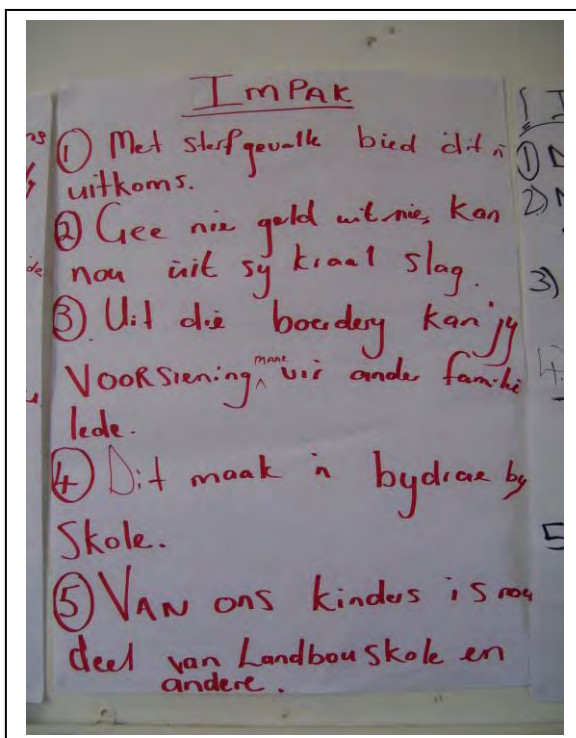 ImPAK
① Met sterfgevalle bied dit 'n
uitkoms.
② Gee nie geld uit nie, kan
nou uit sy kraal slag.
③ Uit die boerdery kan jy
VOORSiening ^maak vir ander familie
lede.
④ Dit maak 'n bydrae by
Skole.
⑤ VAN ons kinders is nou
deel van Landbouskole en
andere.
①
2)
3)
4
5